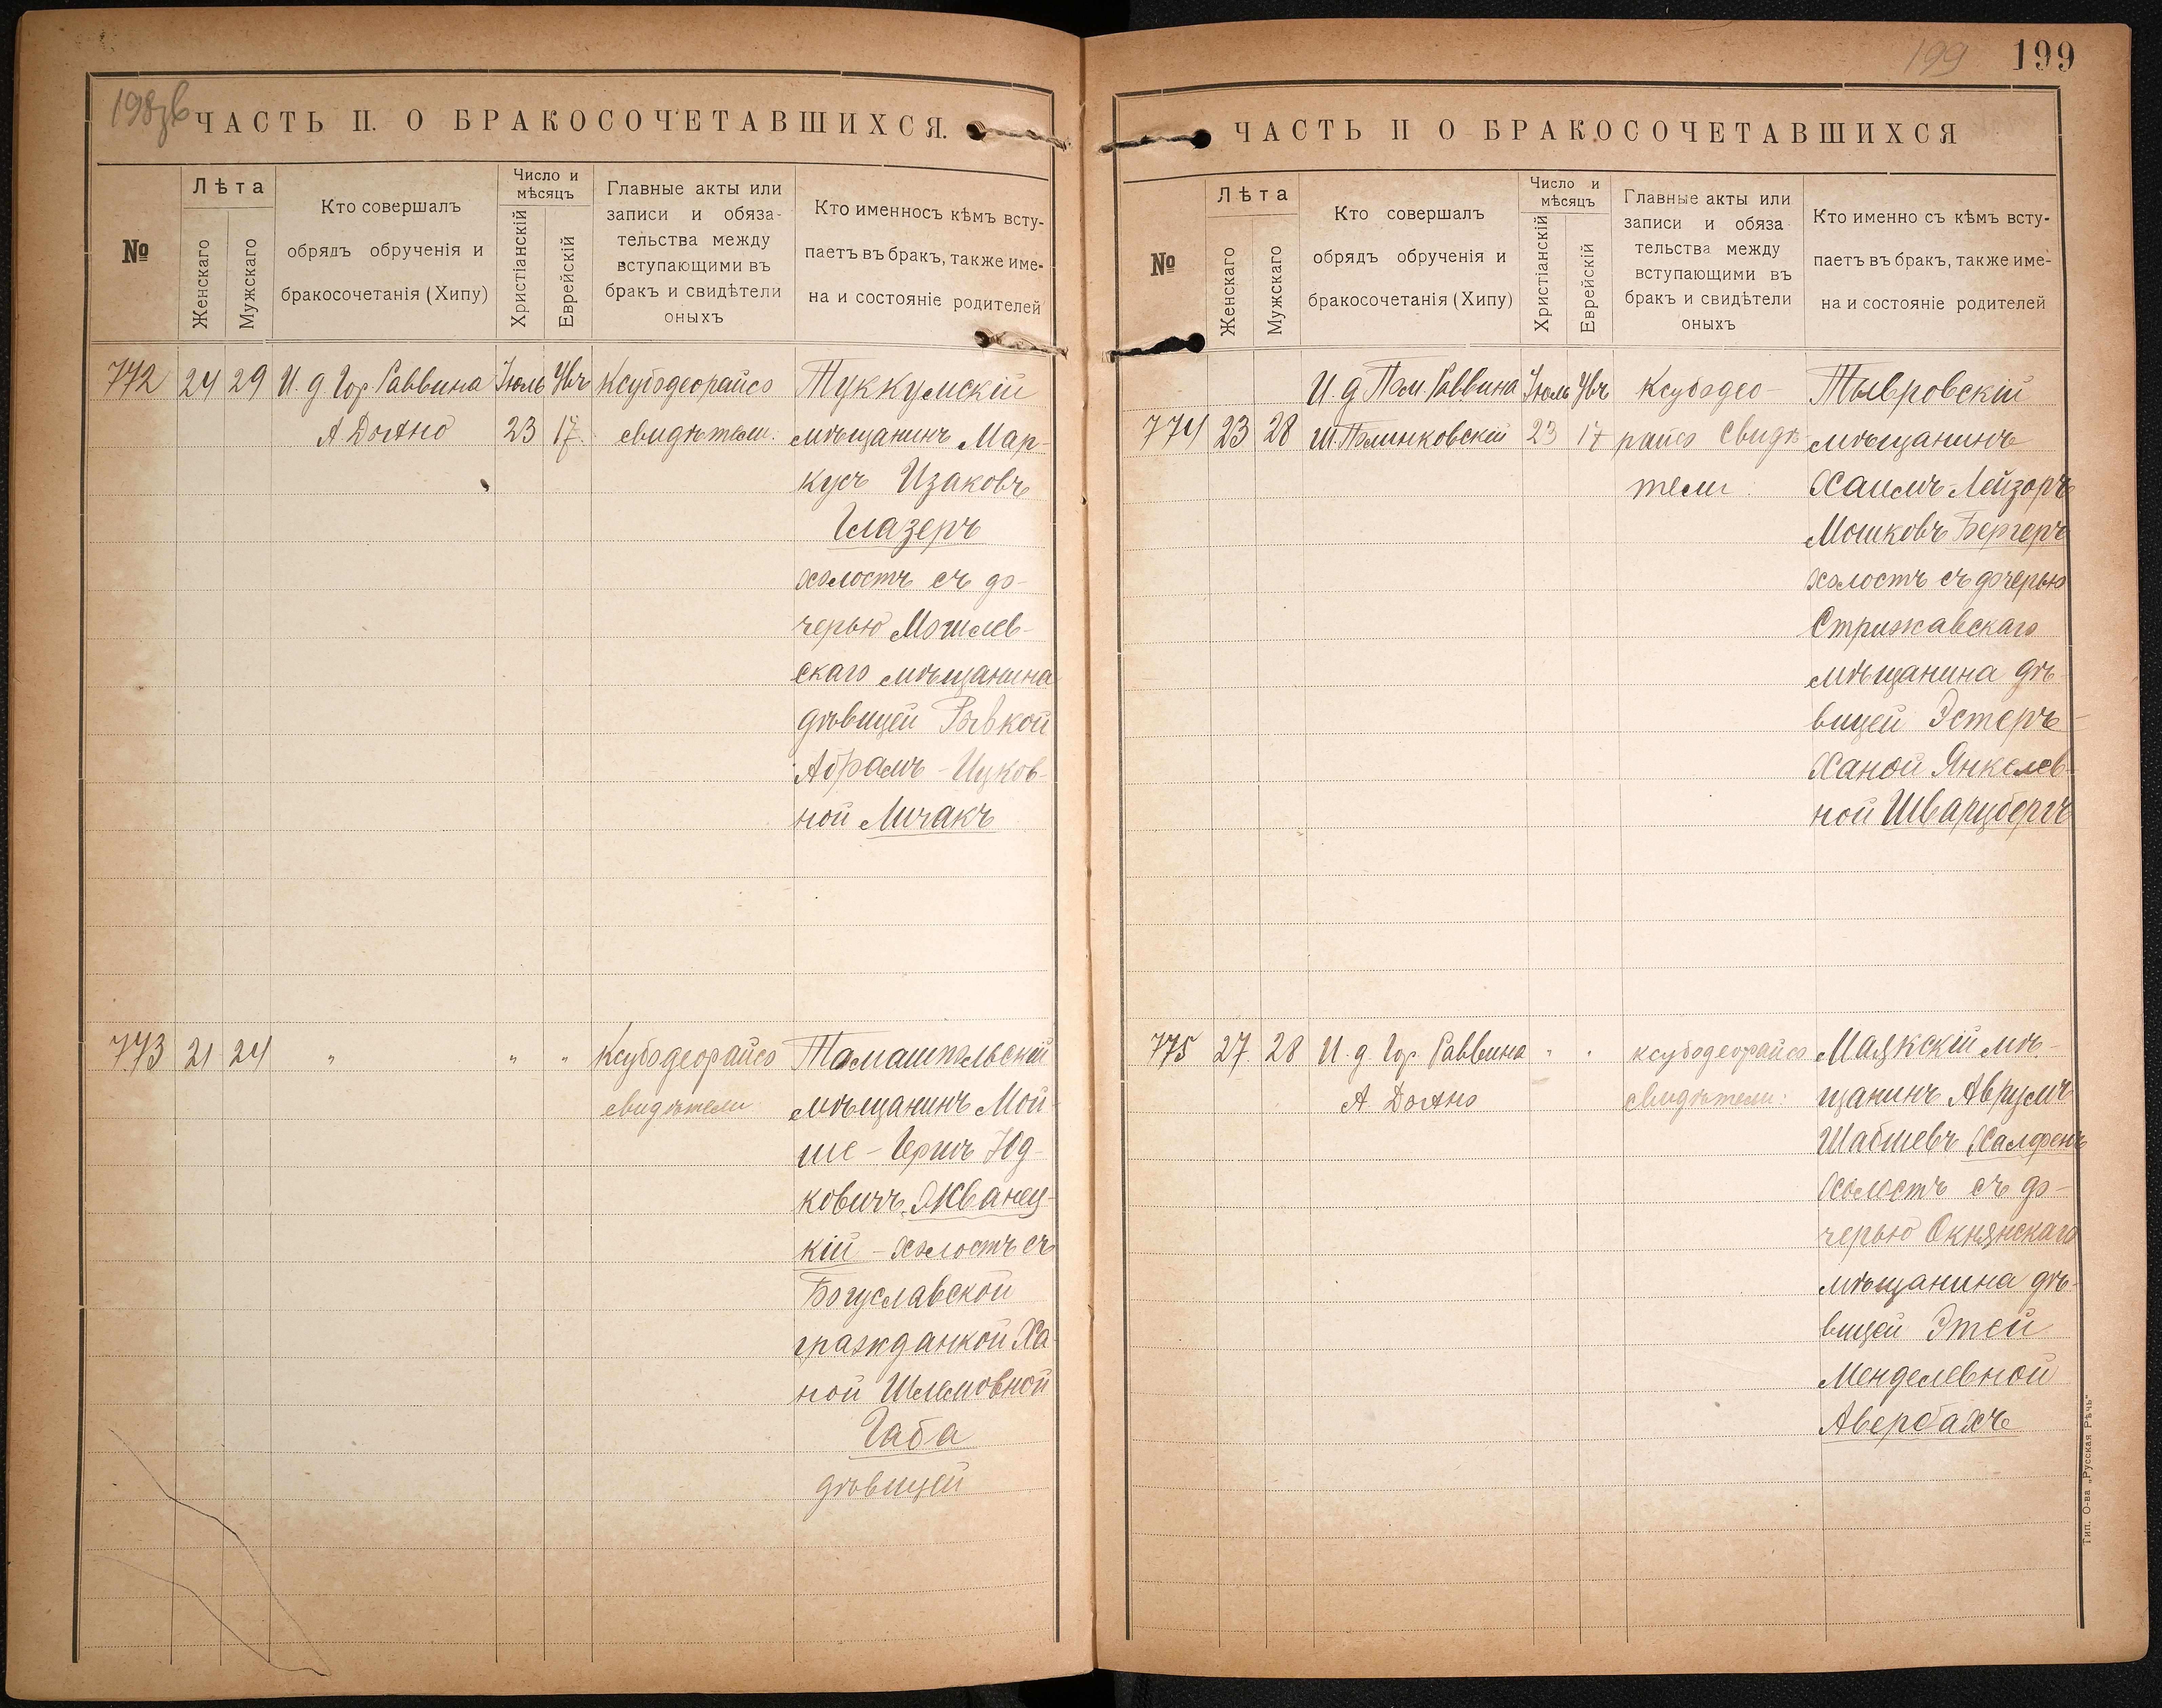 198 об
ЧАСТЬ II. О БРАКОСОЧЕТАВШИХСЯ.
№
Лѣта
Женскаго
Мужскаго
Кто совершалъ
обрядъ обрученія и
бракосочетанія (Хипу)
Число и
мѣсяцъ
Христіанскій
Еврейскій
Главные акты или
записи и обяза-
тельства между
вступающими въ
бракъ и свидѣтели
оныхъ
Кто именносъ кѣмъ всту-
паетъ въ бракъ, также име-
на и состояніе родителей
772 24 29 И. д Гор. Раввина Іюль Увъ Ксубодеорайсо Туккумскій
А Дояно 23 17. свидѣтели. мѣщанинъ Мар-
кусъ Изаковъ
Глазеръ
холостъ съ до-
черью Могилев-
скаго мѣщанина
дѣвицей Ривкой
Абрамъ-Ицков-
ной Личакъ
773 21 24 " " " Ксубодеорайсо Томашпольскій
свидѣтели мѣщанинъ Мой-
ше-Гершъ Юд-
ковичъ Жванец-
кій - холостъ съ
Богуславской
гражданкой Ха-
ной Шлемовной
Габа
дѣвицей
199 199
ЧАСТЬ II О БРАКОСОЧЕТАВШИХСЯ
№
Лѣта
Женскаго
Мужскаго
Кто совершалъ
обрядъ обрученія и
бракосочетанія (Хипу)
Число и
мѣсяцъ
Христіанскій
Еврейскій
Главные акты или
записи и обяза
тельства между
вступающими въ
бракъ и свидѣтели
оныхъ
Кто именно съ кѣмъ всту-
паетъ въ бракъ, также име-
на и состояніе родителей
И. д Пом. Раввина Іюль Увъ Ксубодео- Тывровскій
774 23 28 Ш. Полинковскій 23 17 райсо Свидѣ мѣщанинъ
тели. Хаимъ-Лейзоръ
Мошковъ Бергеръ
холостъ съ дочерью
Стрижавскаго
мѣщанина дѣ-
вицей Эстеръ-
Ханой Янкелев-
ной Шварцбергъ
775 27. 28 И. д. Гор. Раввина " " ксубодеорайсо Маякскій мѣ-
А Дояно свидѣтели: щанинъ Аврумъ
Шабшевъ Халфенъ
холостъ съ до-
черью Окнянскаго
мѣщанина дѣ-
вицей Этей
Менделевной
Авербахъ
Тип. О-ва „Русская Рѣчь“